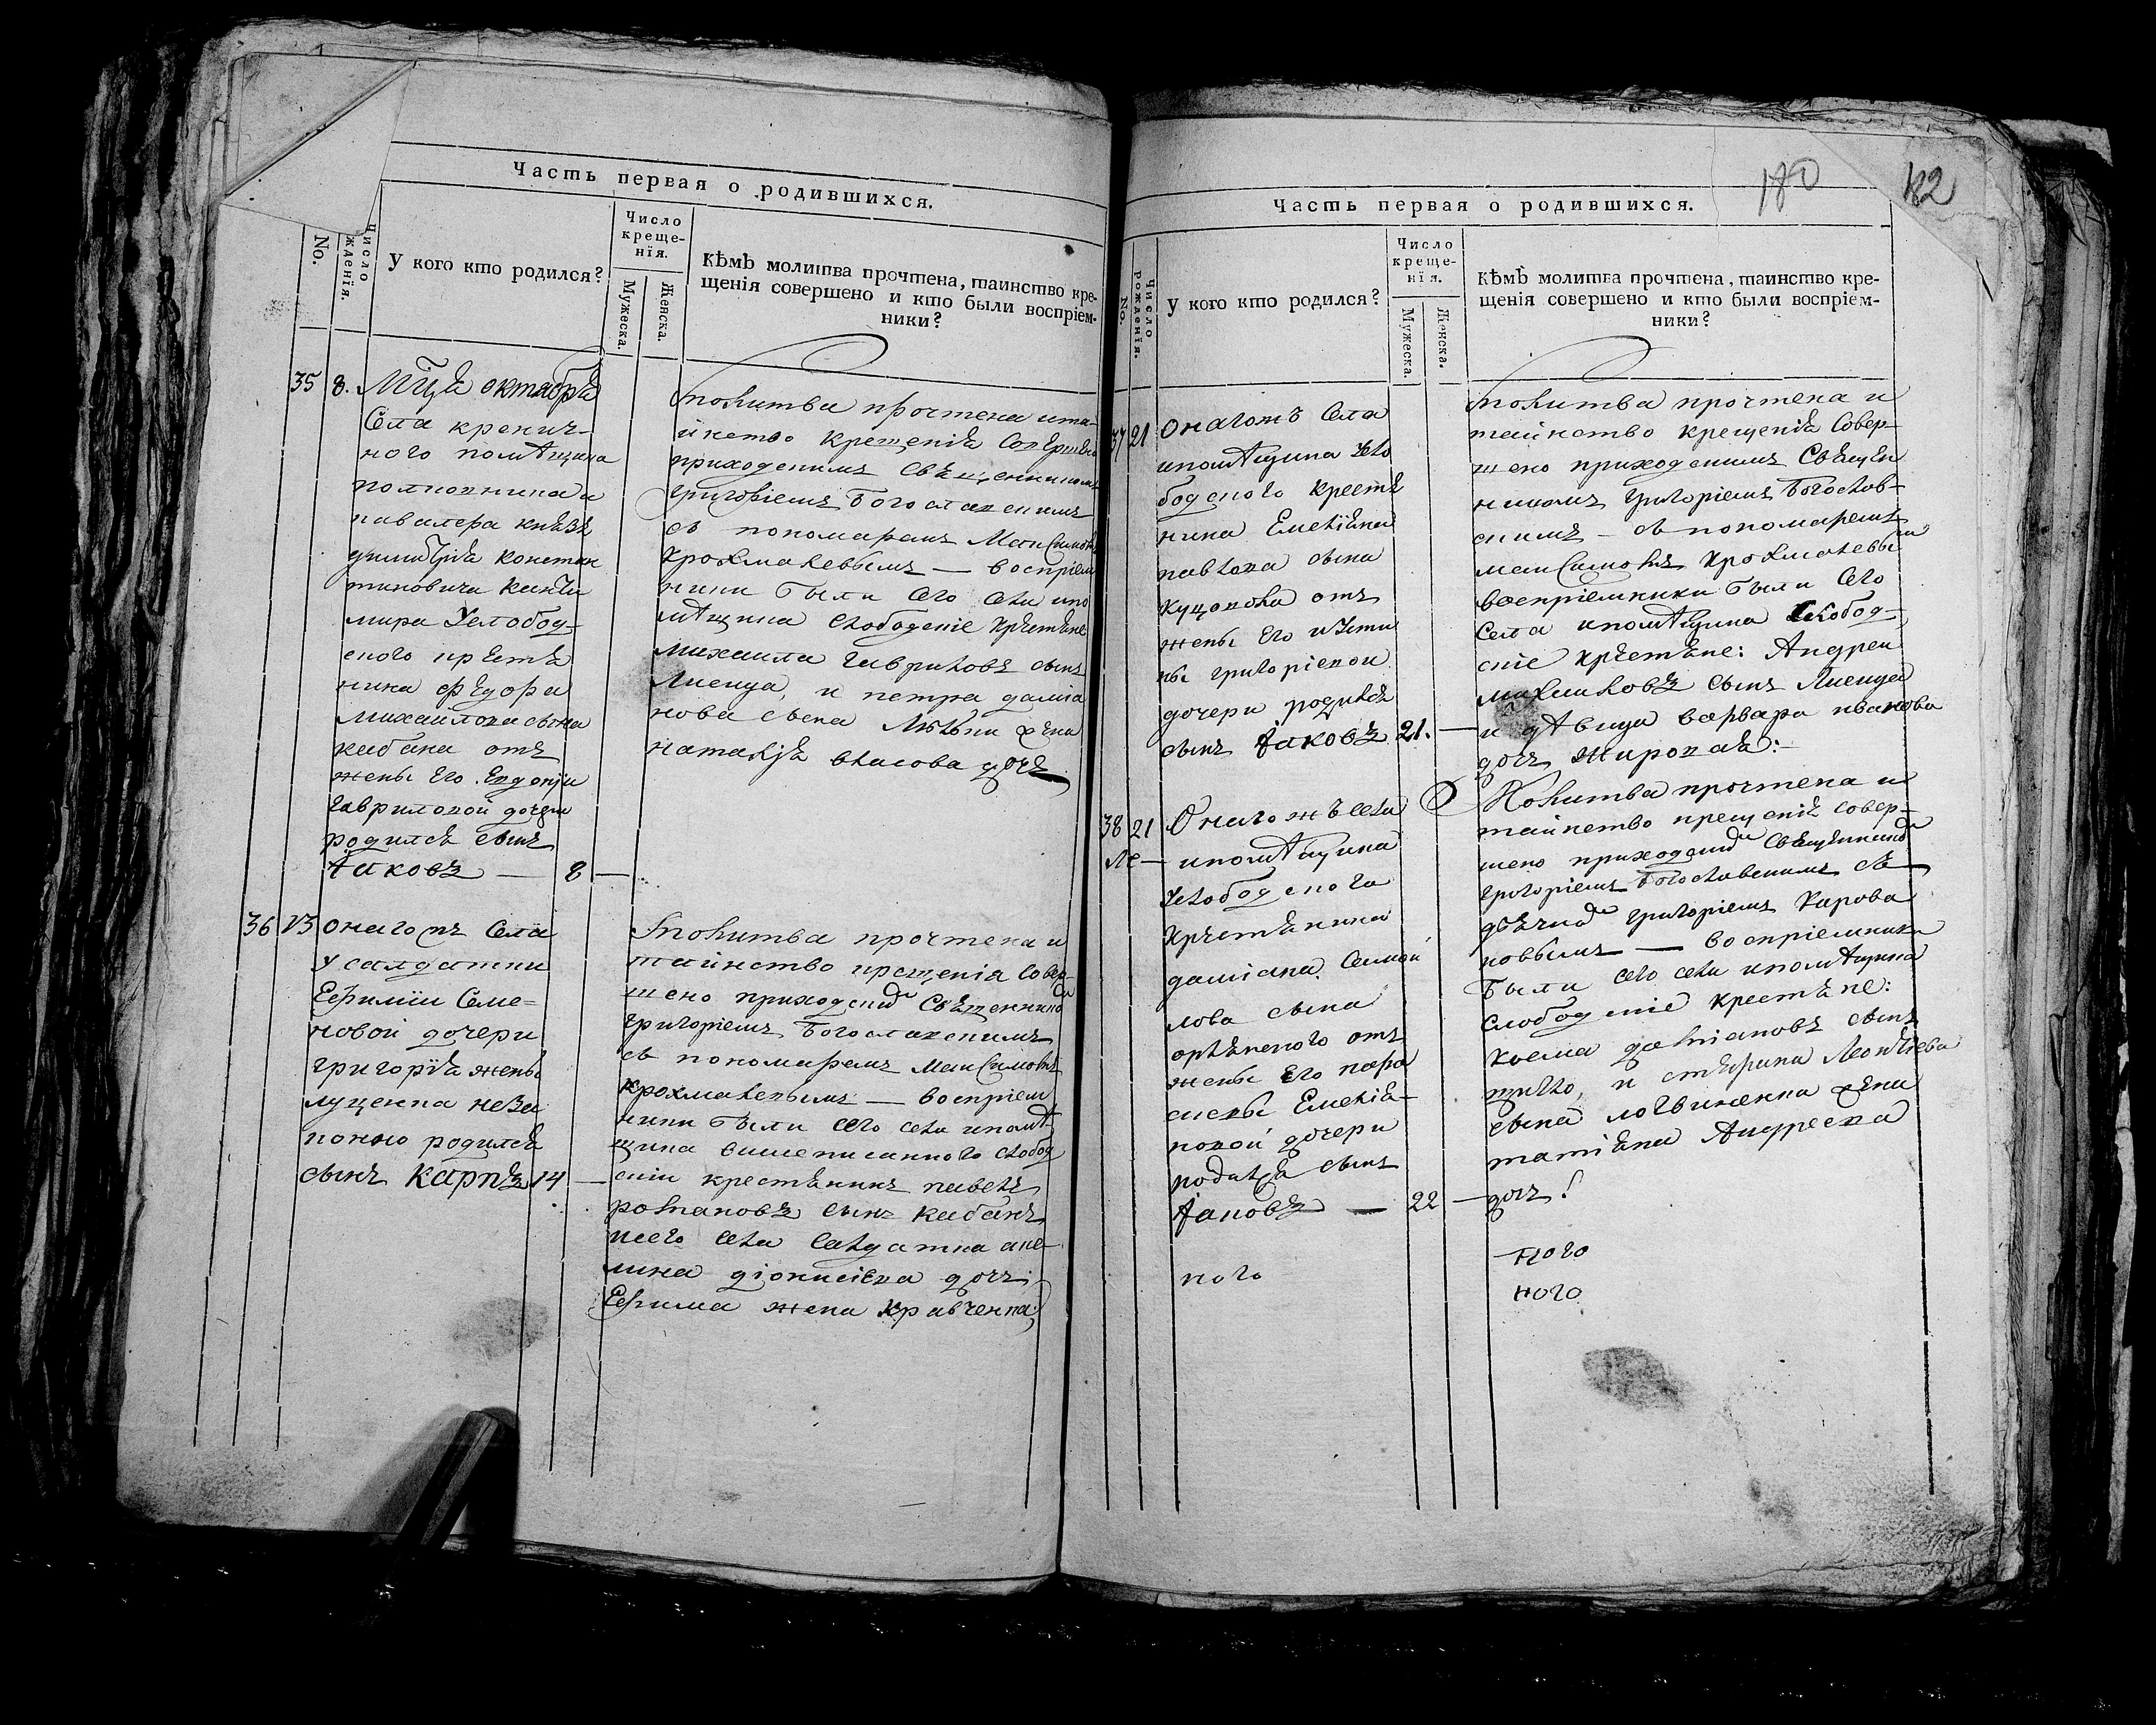 Часть первая о родившихся.
No.
Число
рожденія.
У кого кто родился?
Число
креще-
нія.
Мужеска.
Женска.
Кѣмъ молитва прочтена, таинство кре-
щенія совершено и кто были воспріем-
ники?
35 8. Мца октабра
Села кренич-
ного помѣщика
полковника и
кавалера князя
димитрія констан
тиновича канти
мира услобод-
ского крестя
нина федора
михаилова сына
кабана отъ
жены его Евдокіи
гавриловой дочери
родился сынъ
Іаковъ — 8 —
Молитва прочтена и та-
инство крещенія Совершено
приходскимъ Священникомъ
григоріемъ Богославскимъ
съ пономаремъ Максимомъ
крохмалевымъ — воспріем
ники были сего села и по
мѣщика слободскіе крестяне
михаила гавриловъ сынъ
Лисица, и петра даміа
нова сына жена
наталія власова дочь
36 13 онагожъ Села
у салдатки
Ефиміи Семе-
новой дочери
григорія жены
луценка неза
коною родился
сынъ карпъ 14 —
Молитва прочтена и
таинство крещенія Совер-
шено приходским Священником
григоріемъ Богославскимъ
съ пономаремъ Максимомъ
крохмалевымъ — воспріем
ники были сего села и помѣ
щика вишеписанного слобод
скіи крестянинъ павелъ
романовъ сынъ кабанъ
и сего села салдатка аке-
лина діонисіева дочь
Ефима жена кравченка
Часть первая о родившихся.
180
182
No.
Число
рожденія.
У кого кто родился?
Число
креще-
нія.
Мужеска.
Женска.
Кѣмъ молитва прочтена, таинство кре-
щенія совершено и кто были воспріем-
ники?
37 21 онагожъ Села
и помѣщика сло
бодского крестя
нина Емеліяна
павлова сына
куцокона отъ
жены его Усти
ны григоріевои
дочери родился
сынъ Іаковъ 21. —
Молитва прочтена и
таинство крещенія Совер-
шено приходскимъ Священ
никомъ григоріемъ Богослав-
скимъ — съ пономаремъ
максимомъ крохмалевым
воспріемники были Сего
Села и помѣщика слобод-
скіе крестяне: Андреи
михаиловъ сынъ Лисица
и дѣвица варвара иванова
дочь
38 21 Онагожъ села
и помѣщика
услободского
крестянина
даміана
сына
отъ
жены его пара
скевы Емелія-
новой дочери
родился сынъ
Іаковъ — 22 —
Молитва прочтена и
таинство крещенія совер-
шено приходским Священником
григоріемъ Богославскимъ съ
дячком григоріемъ
— воспріемники
были сего села и помѣщика
слободскіе крестяне:
косма даміановъ сынъ
сына логвиненка жена
татіяна Андреева
дочь
ного
ного
ного